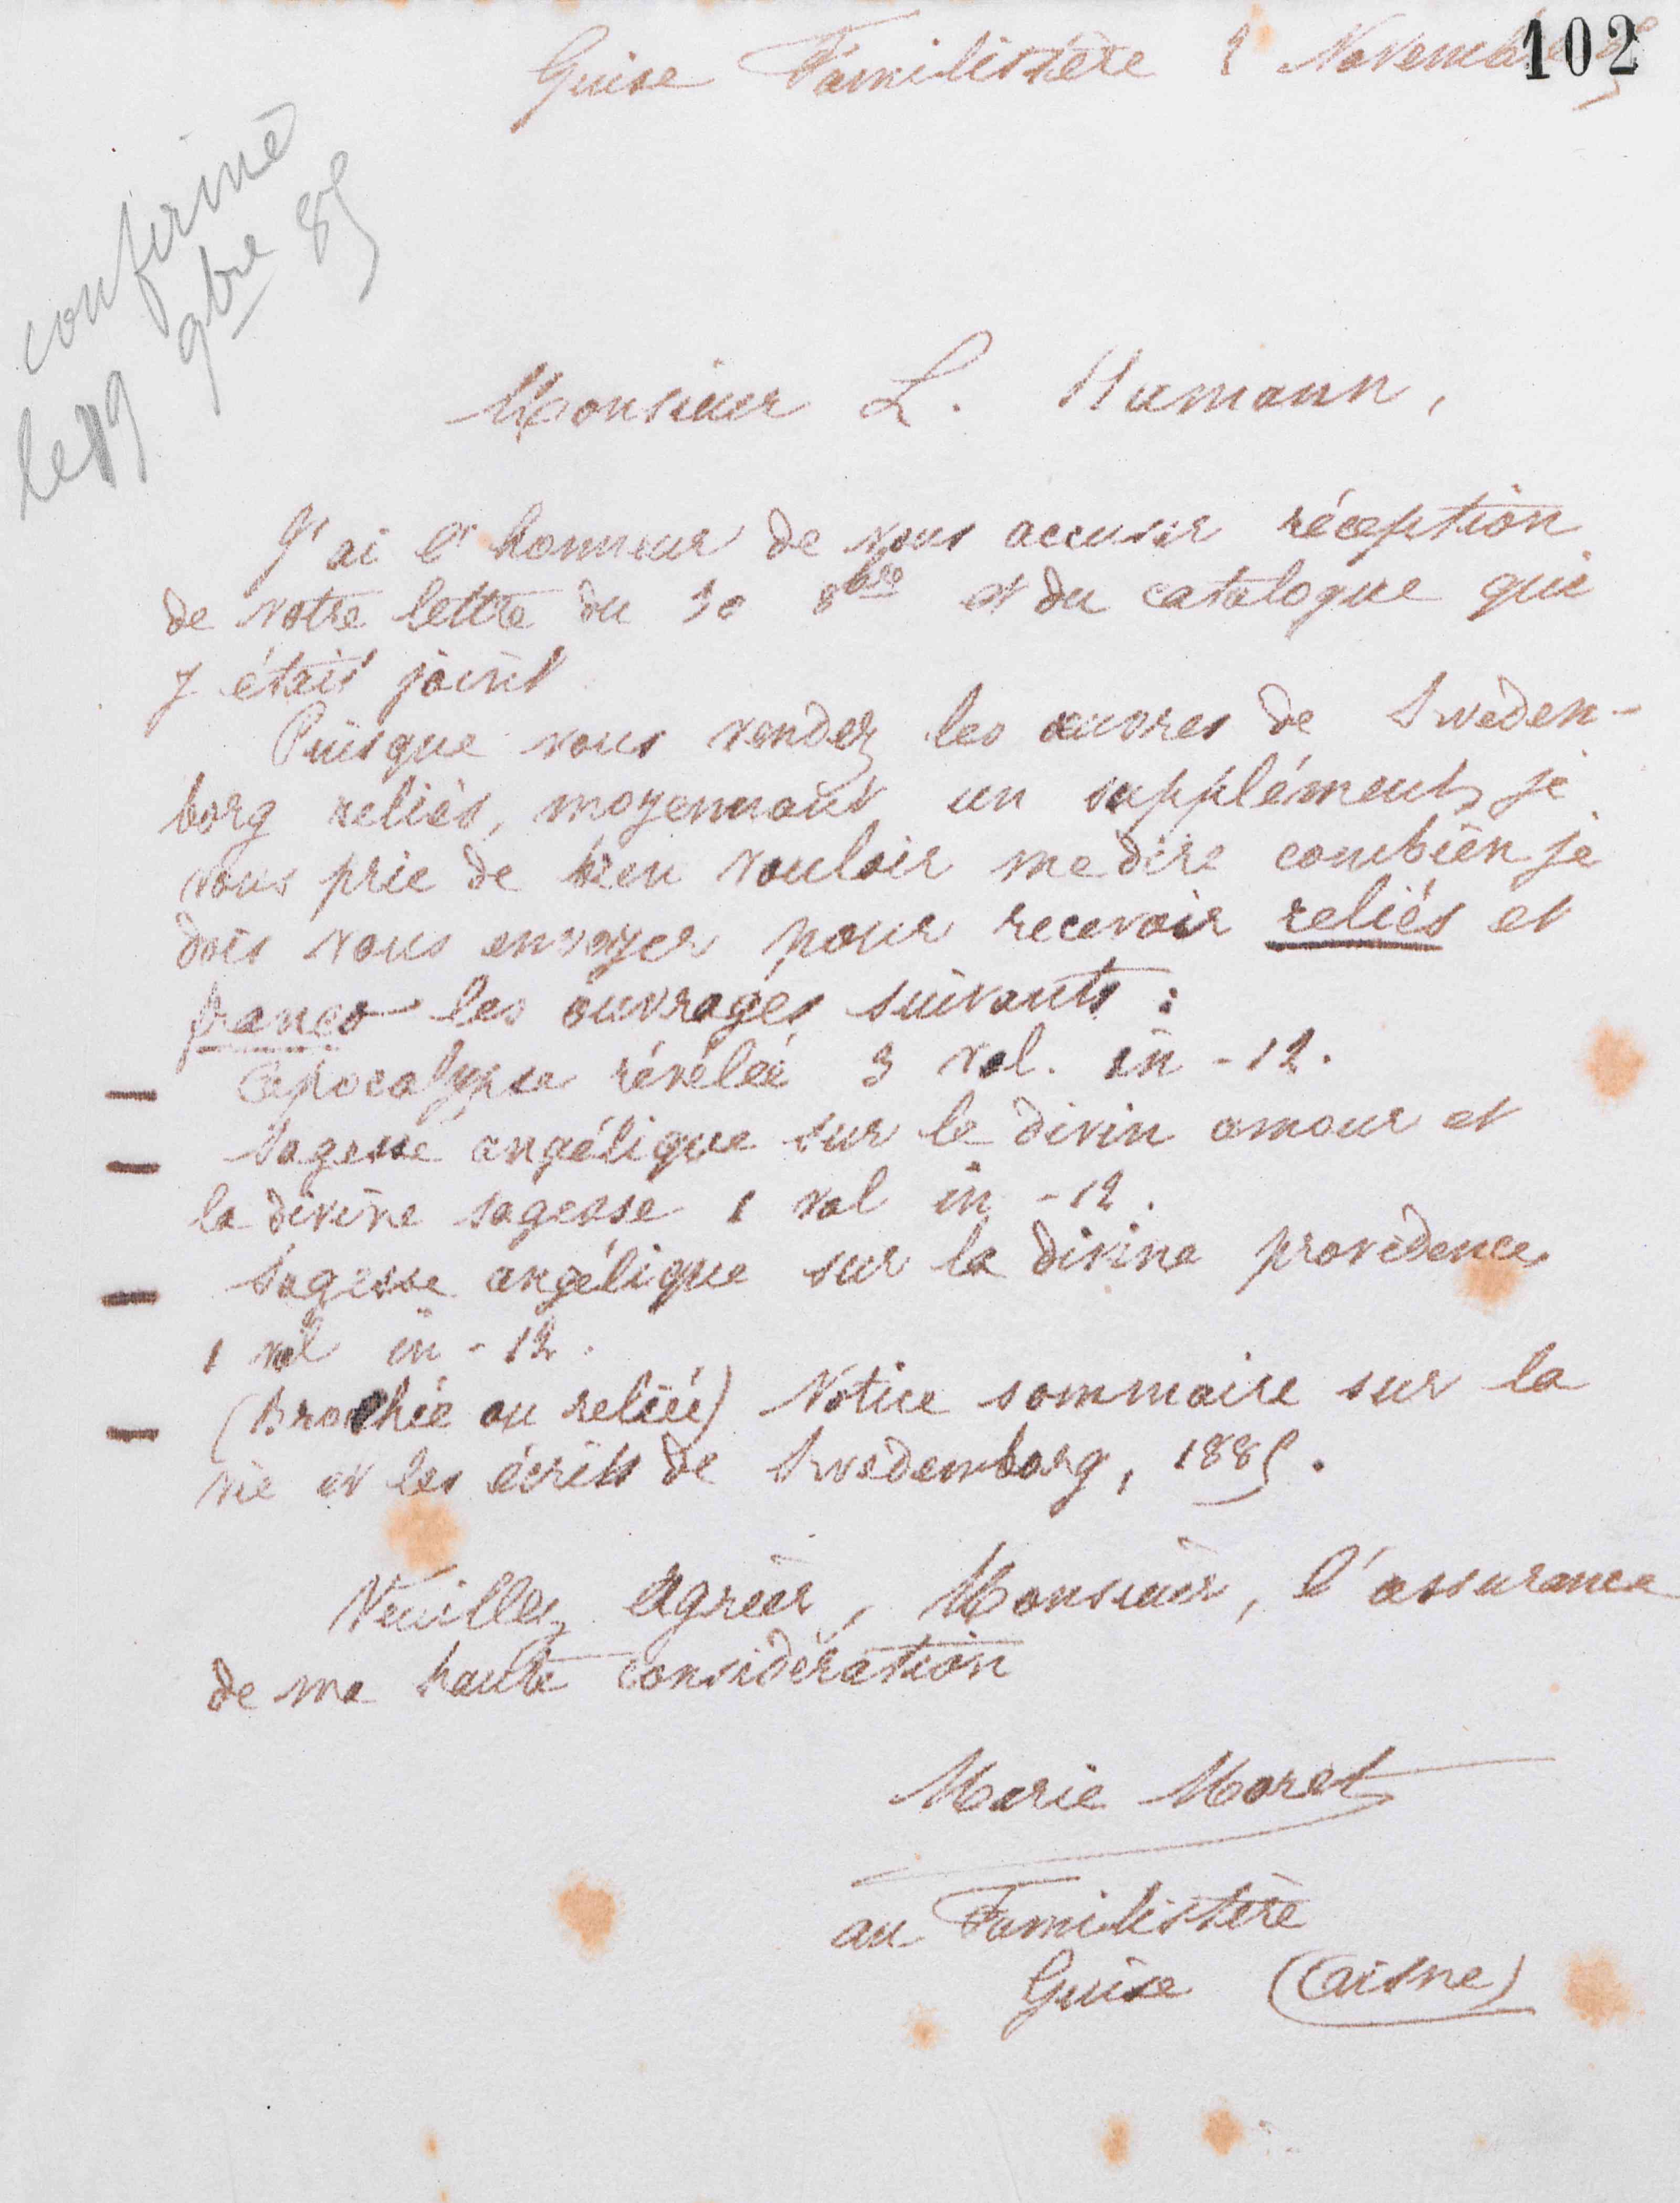 102
Guise Familistère 2 Novembre 85
confirmé
le 19 9bre 85
Monsieur L. Humann,
J'ai l'honneur de vous accuser réception
de votre lettre du 30 8bre et du catalogue qui
y était joint
Puisque vous vendez les œuvres de Sweden-
borg reliés, moyennant un supplément, je
vous prie de bien vouloir me dire combien je
dois vous envoyer pour recevoir reliés et
franco les ouvrages suivants :
— Apocalypse révélée 3 vol. in-12.
— Sagesse angélique sur le divin amour et
la divine sagesse 1 vol in-12.
— Sagesse angélique sur la divine providence,
1 vol in-12.
— (Brochée ou reliée) Notice sommaire sur la
vie et les écrits de Swedemborg, 1885.
Veuillez agréer, Monsieur, l'assurance
de ma haute considération
Marie Moret
au Familistère
Guise (Aisne)